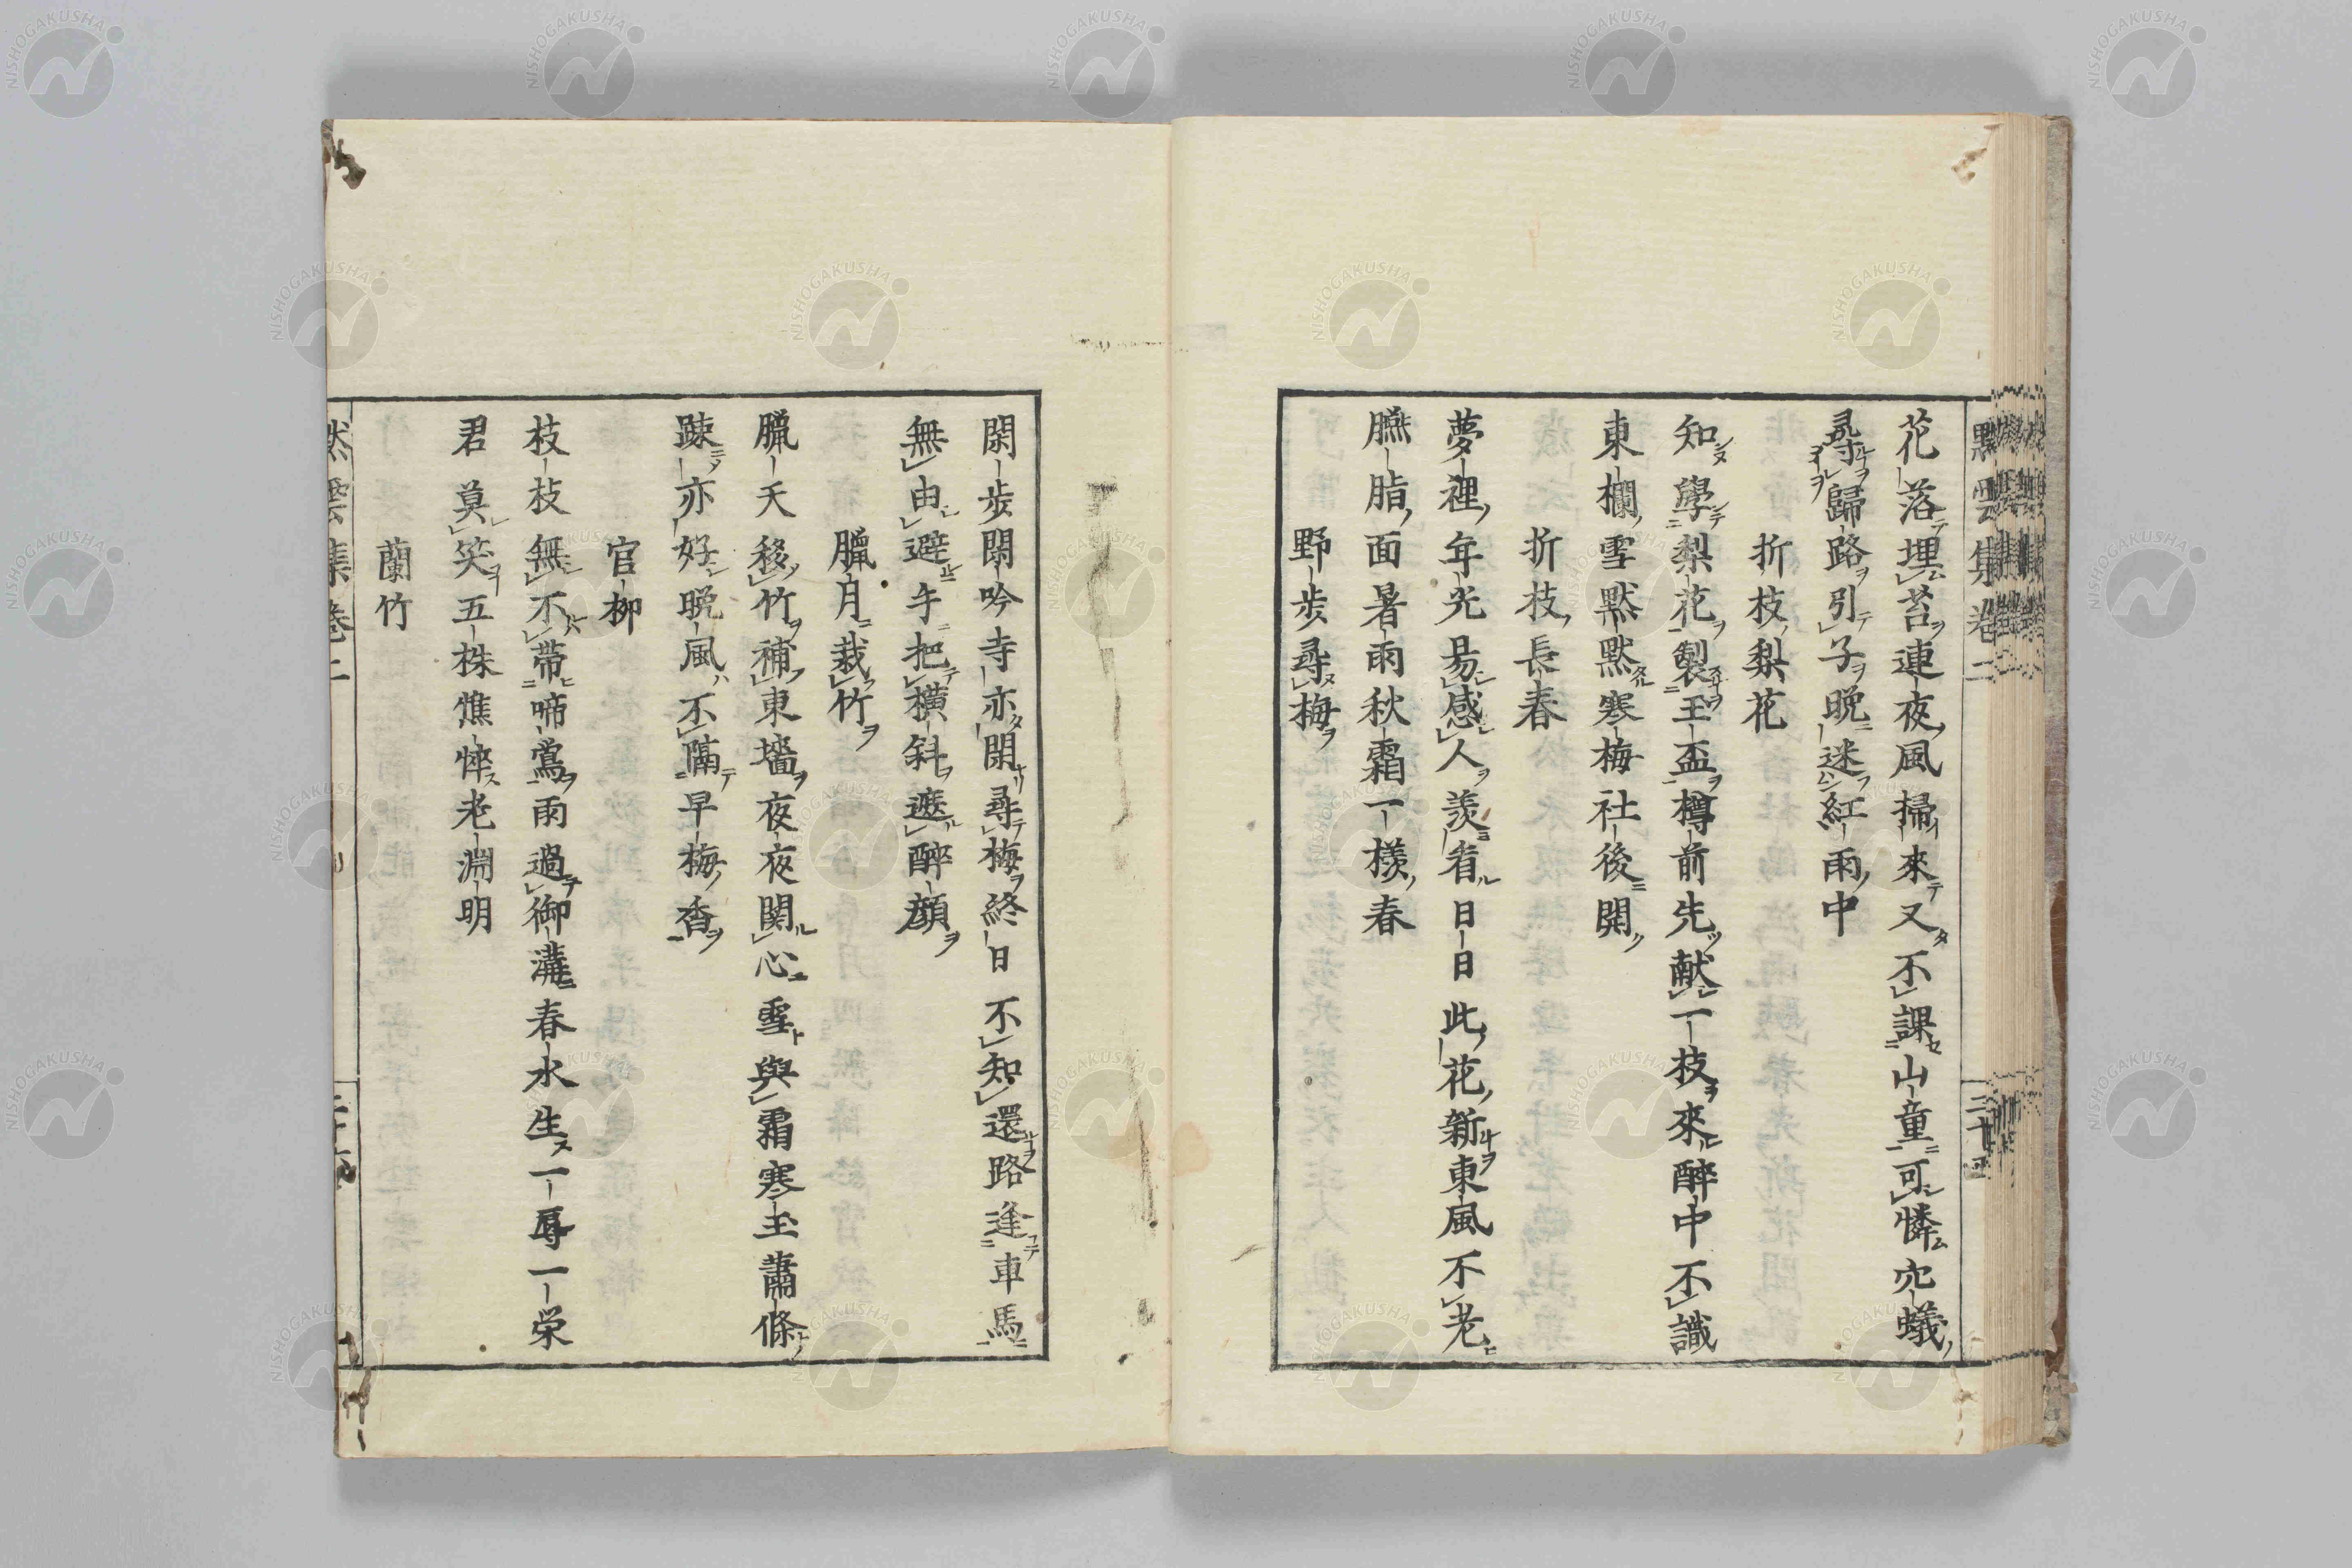 花落埋苔連夜風掃來又不課山童可憐穴蟻
尋歸路引子晩迷紅雨中
折枝梨花
知學梨花製玉盃樽前先献一枝來醉中不識
東欄雪黙黙寒梅社後開
折枝長春
夢裡年光易感人羨看日日此花新東風不老
臙脂面暑雨秋霜一樣春
野歩尋梅
閑歩閑吟寺亦閑尋梅終日不知還路逢車馬
無由避手把横斜遮醉顔
臘月栽竹
臘天移竹補東墻夜夜関心雪與霜寒玉蕭條
踈亦好晩風不隔早梅香
官柳
枝枝無不帶啼鴬雨過御溝春水生一辱一栄
君莫笑五株憔悴老淵明
蘭竹